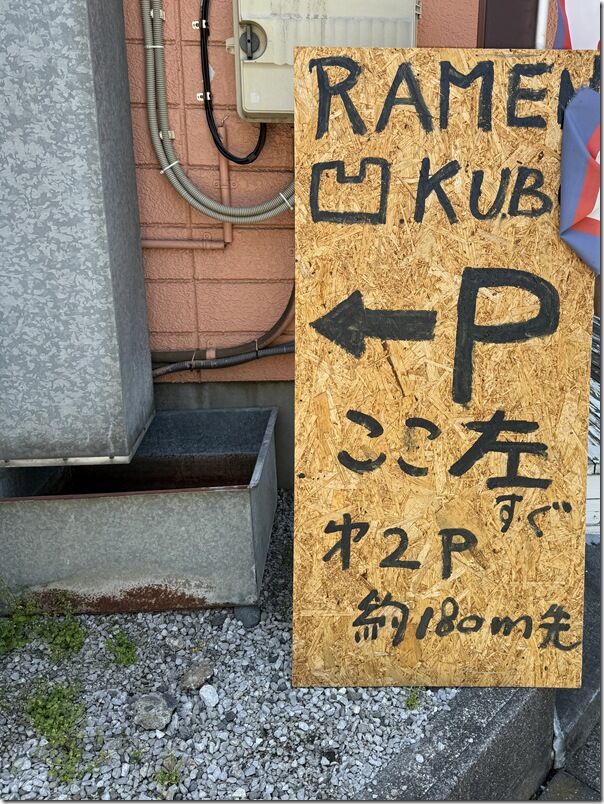 RAMEN
凹 KUB
← P
ここ左
すぐ
才2P
約180m先